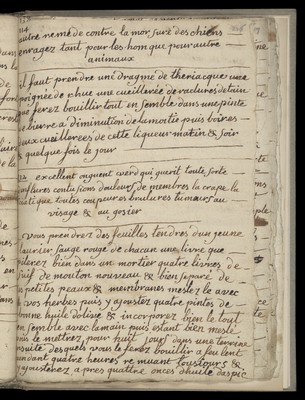 autre remede contre la morsure des chiens
enragez tant pour les hom que pour autre
animaux
il faut prendre une dragme de theriacque une
poignée de rhue une cueillerée de raclures detain
que ferez bouillir tout en semble dans une pinte
de burre a diminution de la moitie puis boires
aux cueillerees de cette liqueur matin & soir
& quelque fois le jour
excellent onguent verd qui guerit toute sorte
enflures contusions douleurs de membres la crape la
goutte que toutes coupeures brulures tumeurs au
visage & au gosier
vous prendrez des feuilles tendres d'un jeune
laurier sauge rouge de chacun une livre que
pilerez bien dans un mortier quatre livres de
suif de mouton nouveau & bien separé de
ses petites peaux & membranes meslez le avec
vos herbes puis y ajoustez quatre pintes de
bonne huile dolive & incorporez bien le tout
en semble avec la main puis estant bien meslé
vous le mettrez pour huit jours dans une terrine
ensuite desquels vous le ferez bouillir a feu lent
pendant quatre heures re muant tousjours &
y ajousterez a pres quattre onces dhuile daspic